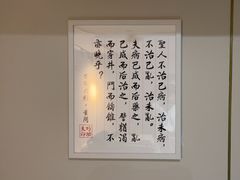 聖人不治已病，治未病，
不治已亂，治未亂。
夫病已成而后藥之，亂
已成而后治之，譬猶渴
而穿井，鬥而鑄錐，不
亦晚乎？